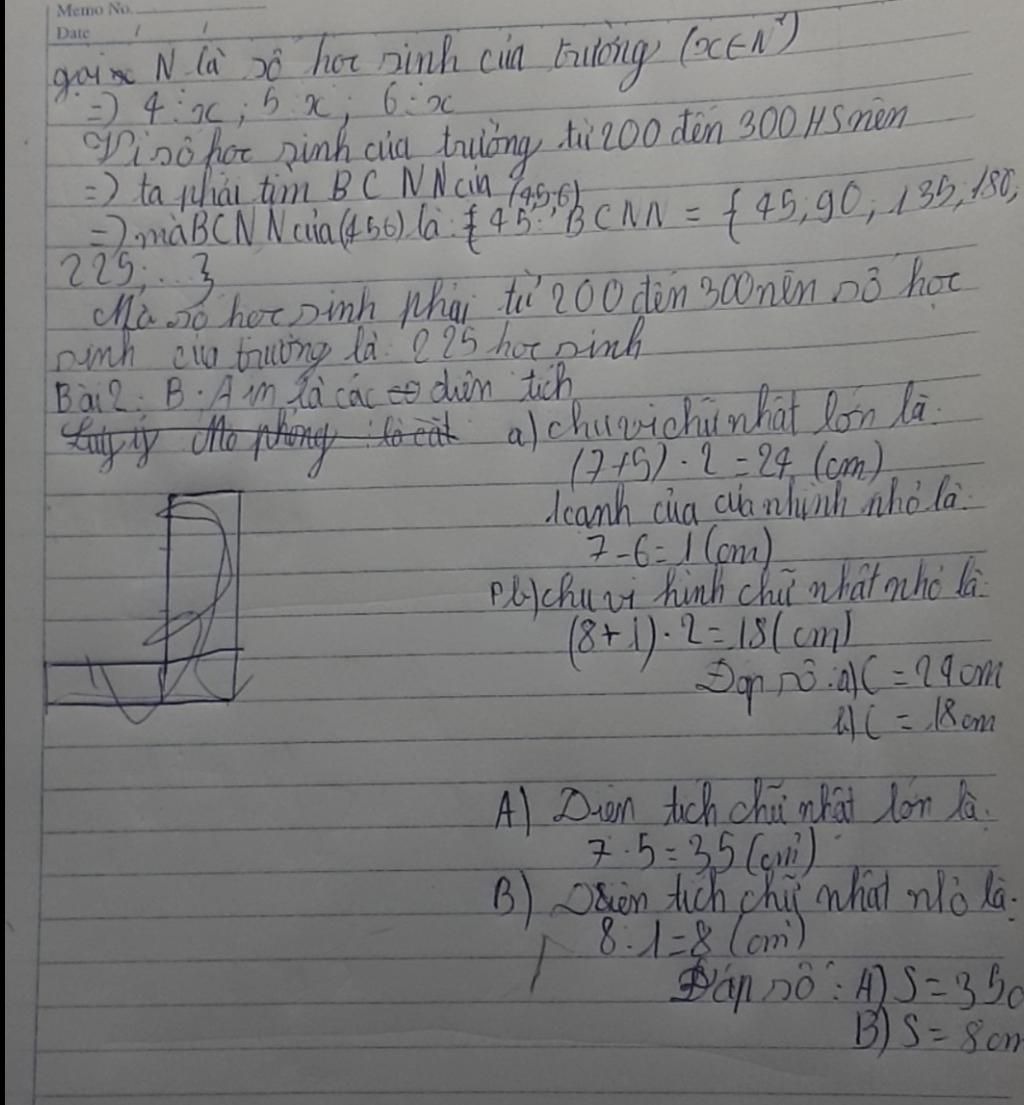 Memo No.
Date / /
gọi x N là số học sinh của trường (x∈N*)
=) 4 ⋮ x ; 5 ⋮ x ; 6 ⋮ x
Vì số học sinh của trường từ 200 đến 300 HS nên
=) ta phải tìm BCNN của (4,5,6)
=) mà BCNN của (4 5 6) là: { 45 ; BCNN = { 45, 90, 135, 180,
225; ... }
Mà số học sinh phải từ 200 đến 300 nên số học
sinh của trường là: 225 học sinh
Bài 2: B. A m là các diện tích
a) chu vi chữ nhật lớn là:
(7+5) . 2 = 24 (cm)
1 cạnh của hình nhỏ là:
7 - 6 = 1 (cm)
b) chu vi hình chữ nhật nhỏ là:
(8+1) . 2 = 18 (cm)
Đáp số: a) C = 24 cm
b) C = 18 cm
A) Diện tích chữ nhật lớn là:
7 . 5 = 35 (cm²)
B) Diện tích chữ nhật nhỏ là:
8 . 1 = 8 (cm²)
Đáp số: A) S = 35c
B) S = 8 cm